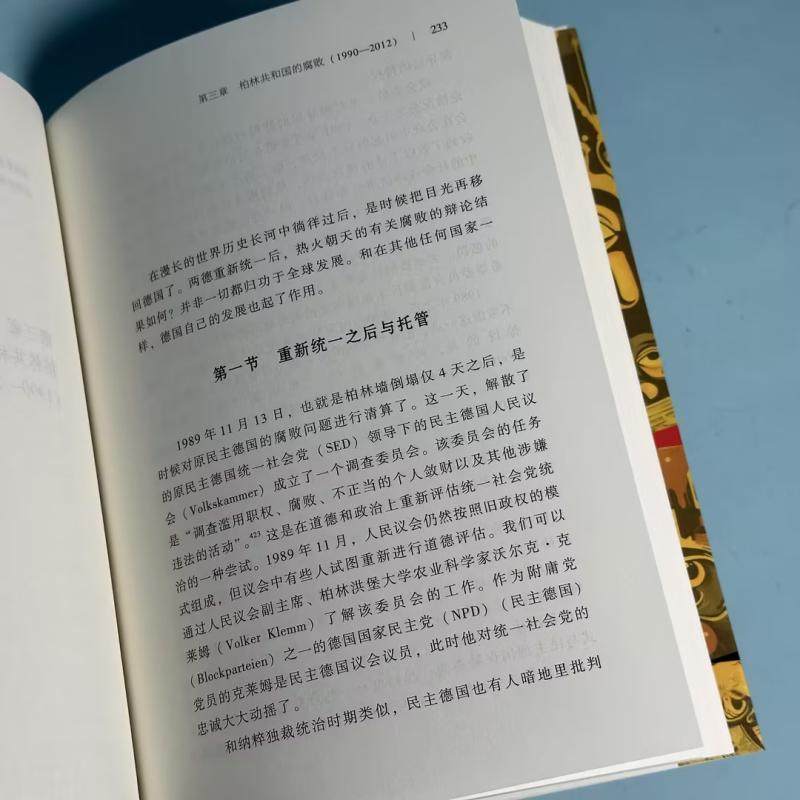 第三章 柏林共和国的腐败(1990—2012) | 233
在漫长的世界历史长河中徜徉过后，是时候把目光再移
回德国了。两德重新统一后，热火朝天的有关腐败的辩论结
果如何？并非一切都归功于全球发展。和在其他任何国家一
样，德国自己的发展也起了作用。
第一节 重新统一之后与托管
1989 年 11 月 13 日，也就是柏林墙倒塌仅 4 天之后，是
时候对原民主德国的腐败问题进行清算了。这一天，解散了
的原民主德国统一社会党（SED）领导下的民主德国人民议
会（Volkskammer）成立了一个调查委员会。该委员会的任务
是“调查滥用职权、腐败、不正当的个人敛财以及其他涉嫌
违法的活动”。423 这是在道德和政治上重新评估统一社会党统
治的一种尝试。1989 年 11 月，人民议会仍然按照旧政权的模
式组成，但议会中有些人试图重新进行道德评估。我们可以
通过人民议会副主席、柏林洪堡大学农业科学家沃尔克·克
莱姆（Volker Klemm）了解该委员会的工作。作为附庸党
（Blockparteien）之一的德国国家民主党（NPD）（民主德国）
党员的克莱姆是民主德国议会议员，此时他对统一社会党的
忠诚大大动摇了。
和纳粹独裁统治时期类似，民主德国也有人暗地里批判